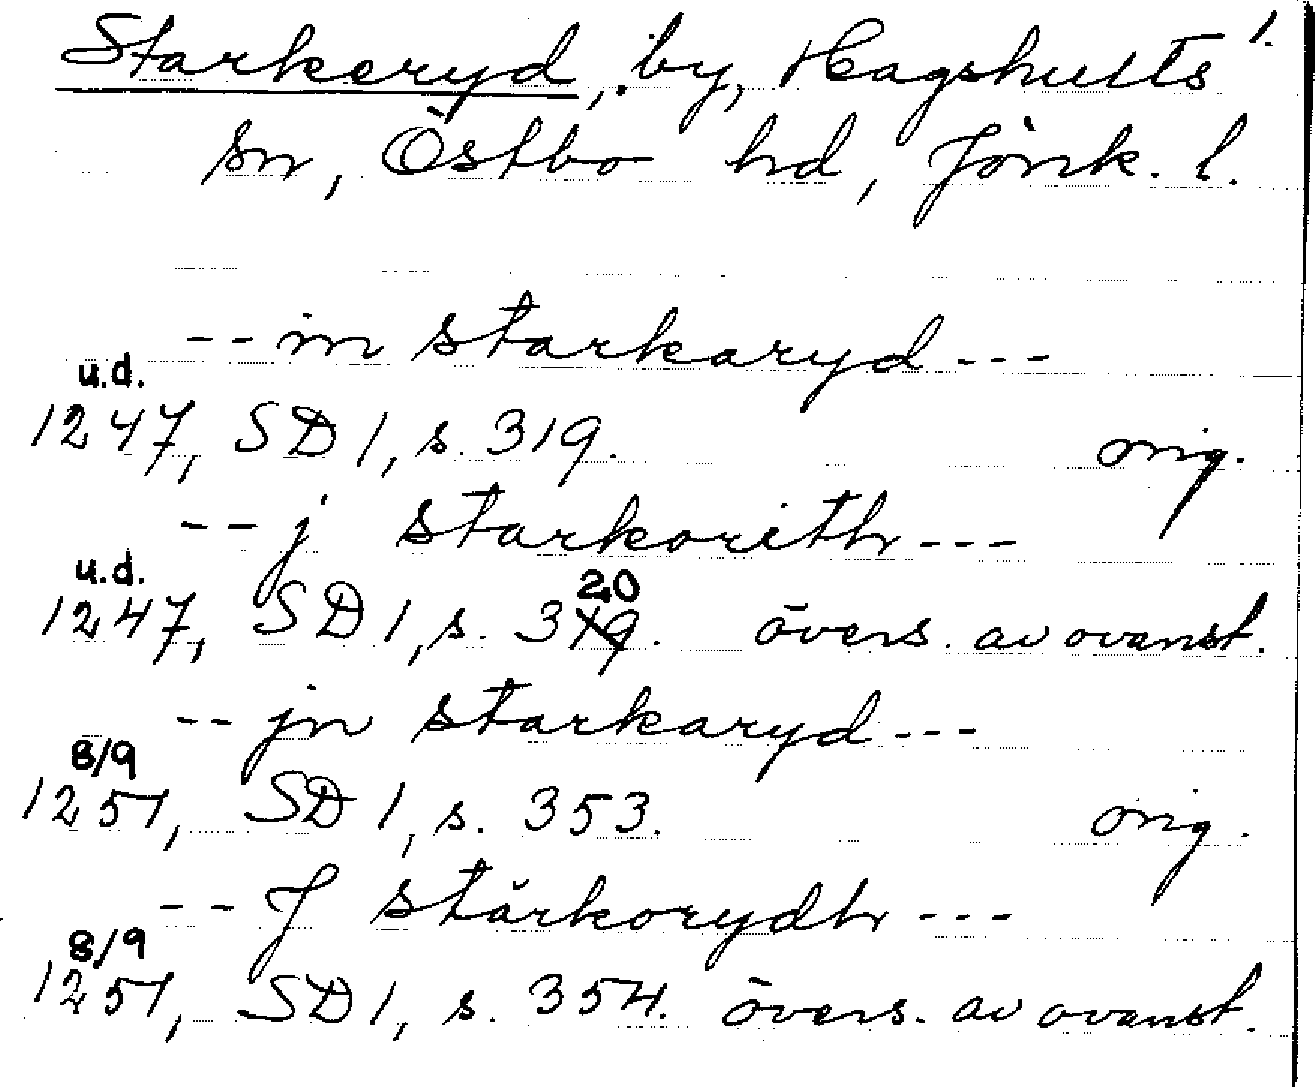 Starkeryd, by, Hagshults 1.
sn, Östbo hd, Jönk. l.
-- in starkaryd ---
u.d.
1247, SD 1, s. 319. orig.
-- j starkorith ---
u.d. 20
1247, SD 1, s. 319. övers. av ovanst.
-- jn starkaryd ---
8/9
1251, SD 1, s. 353. orig.
-- J stárkorydh ---
8/9
1251, SD 1, s. 354. övers. av ovanst.